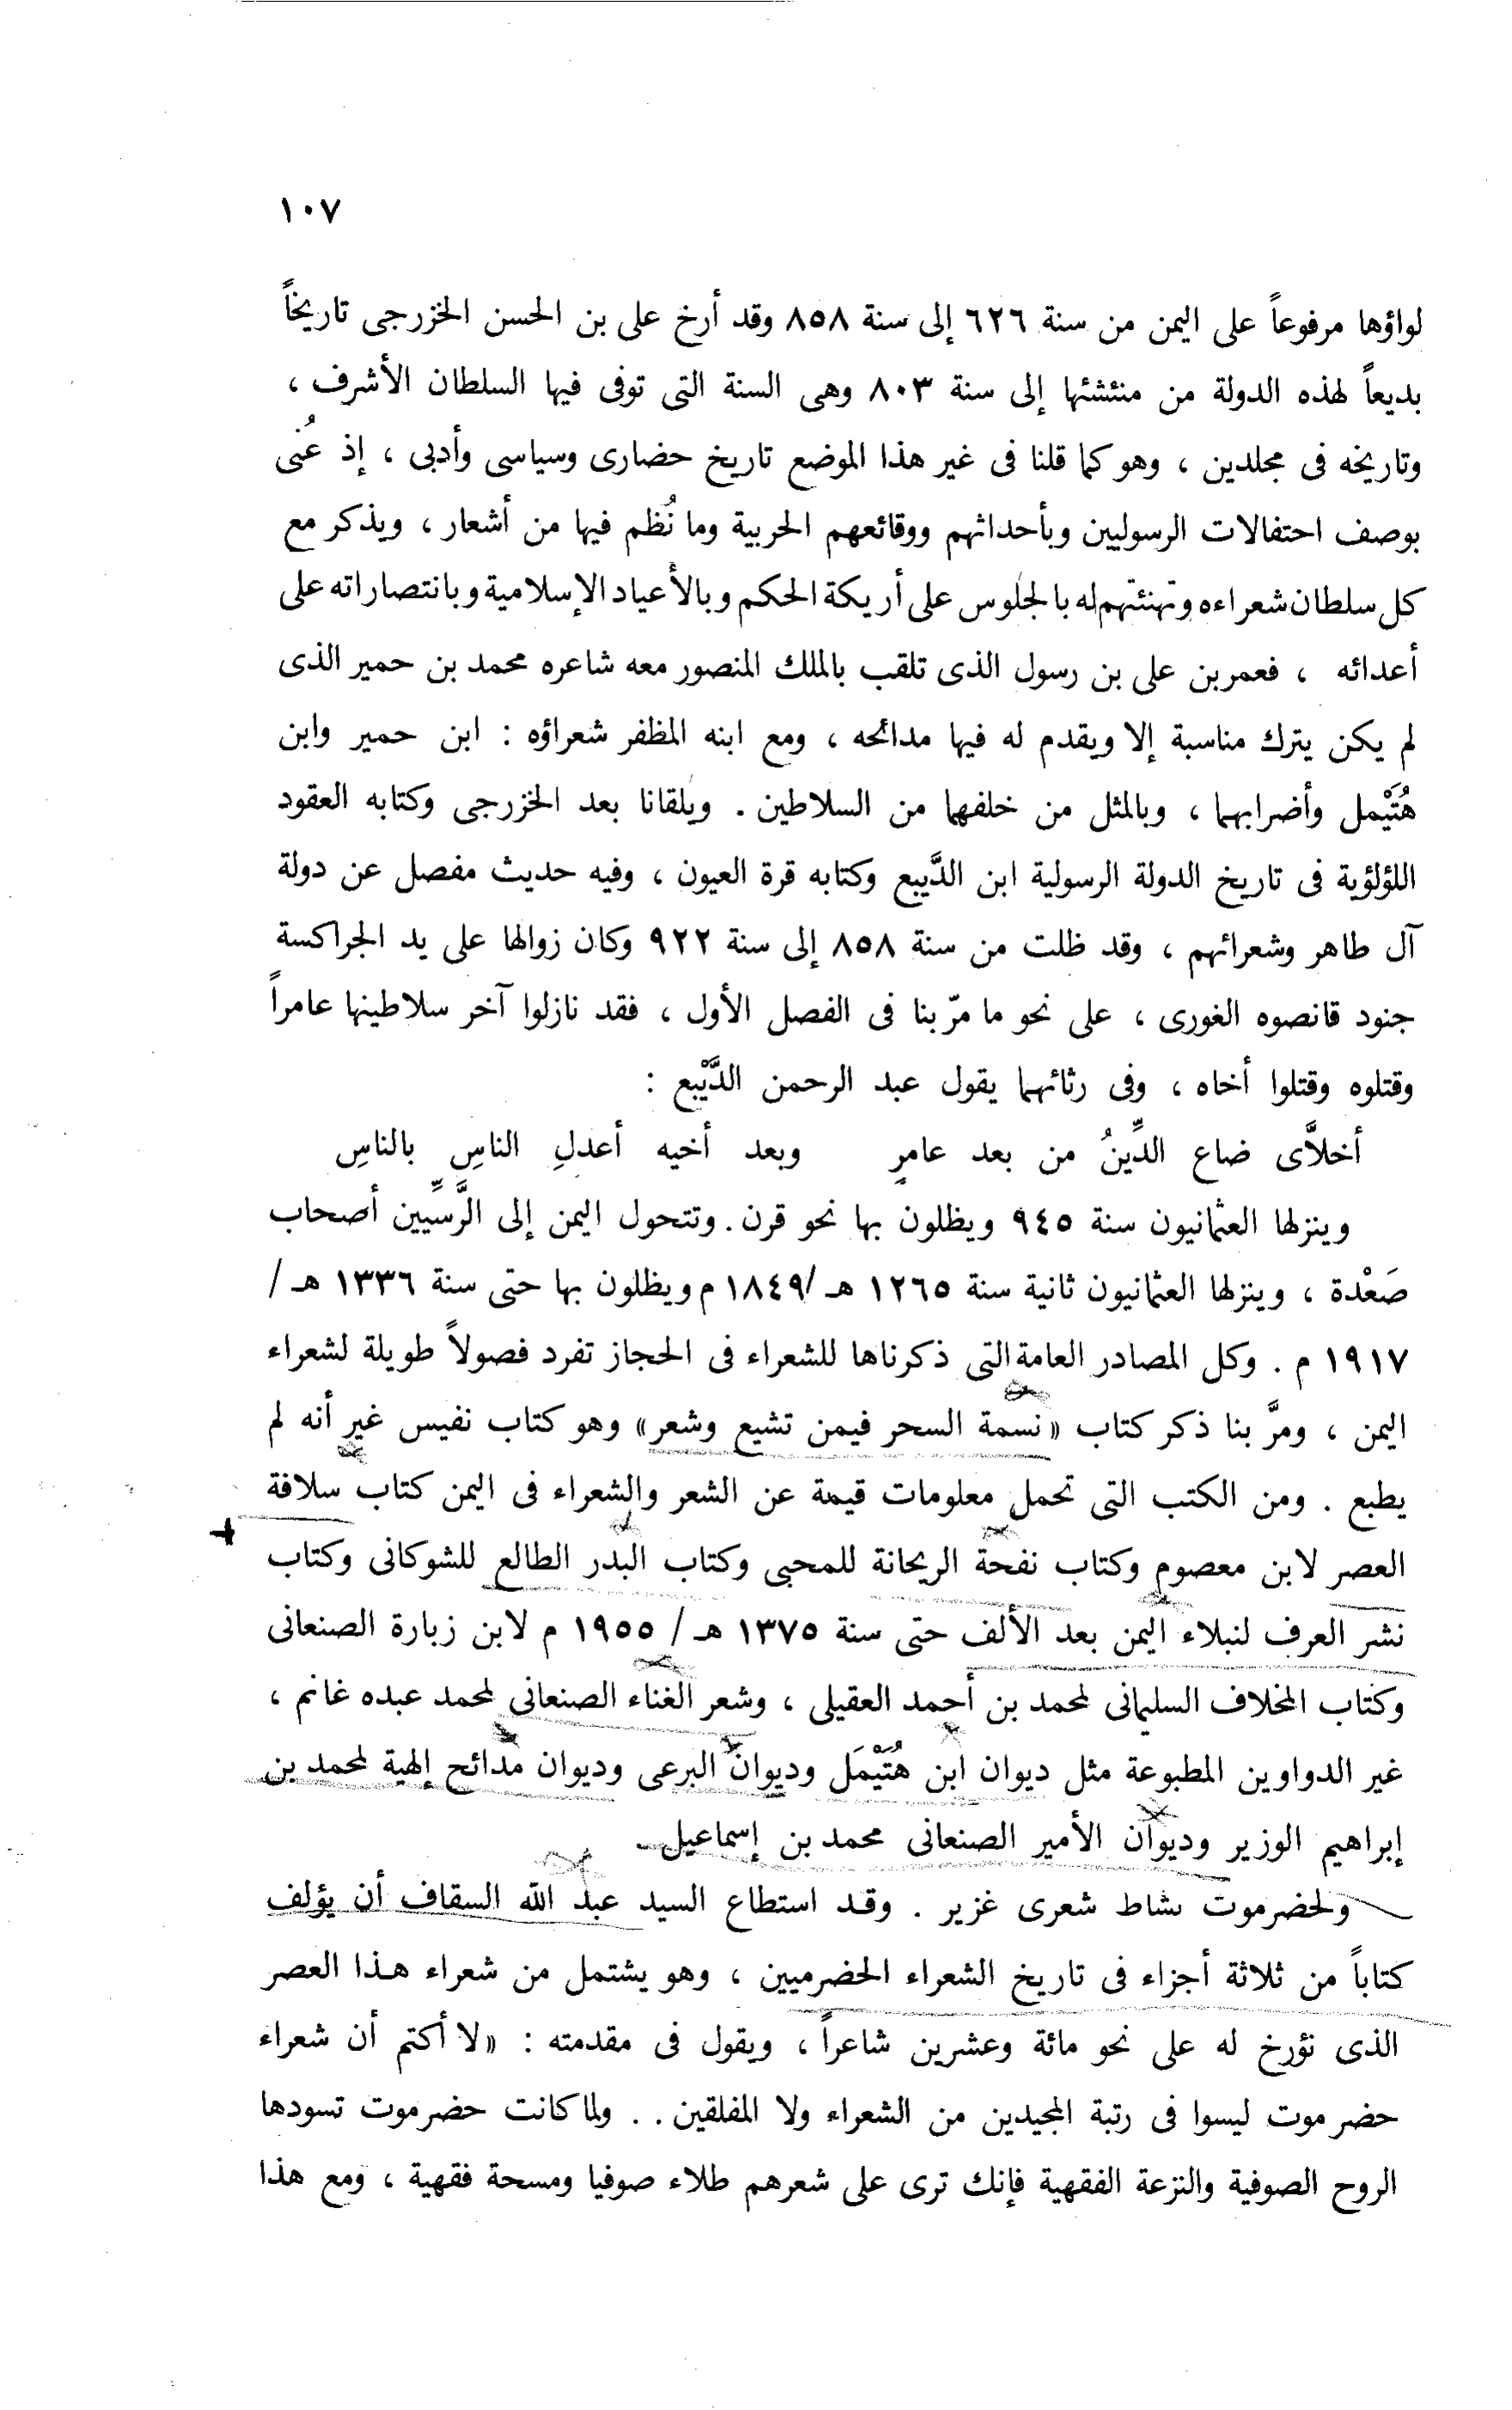 ١٠٧
لواؤها مرفوعاً على اليمن من سنة ٦٢٦ إلى سنة ٨٥٨ وقد أرخ على بن الحسن الخزرجى تاريخاً
بديعاً لهذه الدولة من منئشئها إلى سنة ٨٠٣ وهى السنة التى توفى فيها السلطان الأشرف ،
وتاريخه فى مجلدين ، وهو كما قلنا فى غير هذا الموضع تاريخ حضارى وسياسى وأدبى ، إذ عُنى
بوصف احتفالات الرسوليين وبأحداثهم ووقائعهم الحربية وما نُظم فيها من أشعار ، ويذكر مع
كل سلطان شعراءه وتهنئتهم له بالجلوس على أريكة الحكم وبالأعياد الإسلامية وبانتصاراته على
أعدائه ، فعمربن على بن رسول الذى تلقب بالملك المنصور معه شاعره محمد بن حمير الذى
لم يكن يترك مناسبة إلا ويقدم له فيها مدائحه ، ومع ابنه المظفر شعراؤه : ابن حمير وابن
هُتَيْمل وأضرابهما ، وبالمثل من خلفهما من السلاطين . ويلقانا بعد الخزرجى وكتابه العقود
اللؤلؤية فى تاريخ الدولة الرسولية ابن الدَّيبع وكتابه قرة العيون ، وفيه حديث مفصل عن دولة
آل طاهر وشعرائهم ، وقد ظلت من سنة ٨٥٨ إلى سنة ٩٢٢ وكان زوالها على يد الجراكسة
جنود قانصوه الغورى ، على نحو ما مرّ بنا فى الفصل الأول ، فقد نازلوا آخر سلاطينها عامراً
وقتلوه وقتلوا أخاه ، وفى رثائهما يقول عبد الرحمن الدَّيْبع :
أخلاَّى ضاع الدِّينُ من بعد عامرٍ وبعد أخيه أعدلِ الناسِ بالناسِ
وينزلها العثمانيون سنة ٩٤٥ ويظلون بها نحو قرن . وتتحول اليمن إلى الرَّسِّيين أصحاب
صَعْدة ، وينزلها العثمانيون ثانية سنة ١٢٦٥ هـ/١٨٤٩ م ويظلون بها حتى سنة ١٣٣٦ هـ /
١٩١٧ م . وكل المصادر العامة التى ذكرناها للشعراء فى الحجاز تفرد فصولاً طويلة لشعراء
اليمن ، ومرَّ بنا ذكر كتاب « نسمة السحر فيمن تشيع وشعر» وهو كتاب نفيس غير أنه لم
يطبع . ومن الكتب التى تحمل معلومات قيمة عن الشعر والشعراء فى اليمن كتاب سلافة
العصر لابن معصوم وكتاب نفحة الريحانة للمحبى وكتاب البدر الطالع للشوكانى وكتاب
نشر العرف لنبلاء اليمن بعد الألف حتى سنة ١٣٧٥ هـ / ١٩٥٥ م لابن زبارة الصنعانى
وكتاب المخلاف السليمانى لمحمد بن أحمد العقيلى ، وشعر الغناء الصنعانى لمحمد عبده غانم ،
غير الدواوين المطبوعة مثل ديوان ابن هُتَيْمَل وديوان البرعى وديوان مدائح إلهية لمحمد بن
إبراهيم الوزير وديوان الأمير الصنعانى محمد بن إسماعيل .
ولحضرموت نشاط شعرى غزير . وقد استطاع السيد عبد الله السقاف أن يؤلف
كتاباً من ثلاثة أجزاء فى تاريخ الشعراء الحضرميين ، وهو يشتمل من شعراء هذا العصر
الذى نؤرخ له على نحو مائة وعشرين شاعراً ، ويقول فى مقدمته : « لا أكتم أن شعراء
حضرموت ليسوا فى رتبة المجيدين من الشعراء ولا المفلقين .. ولما كانت حضرموت تسودها
الروح الصوفية والنزعة الفقهية فإنك ترى على شعرهم طلاء صوفيا ومسحة فقهية ، ومع هذا